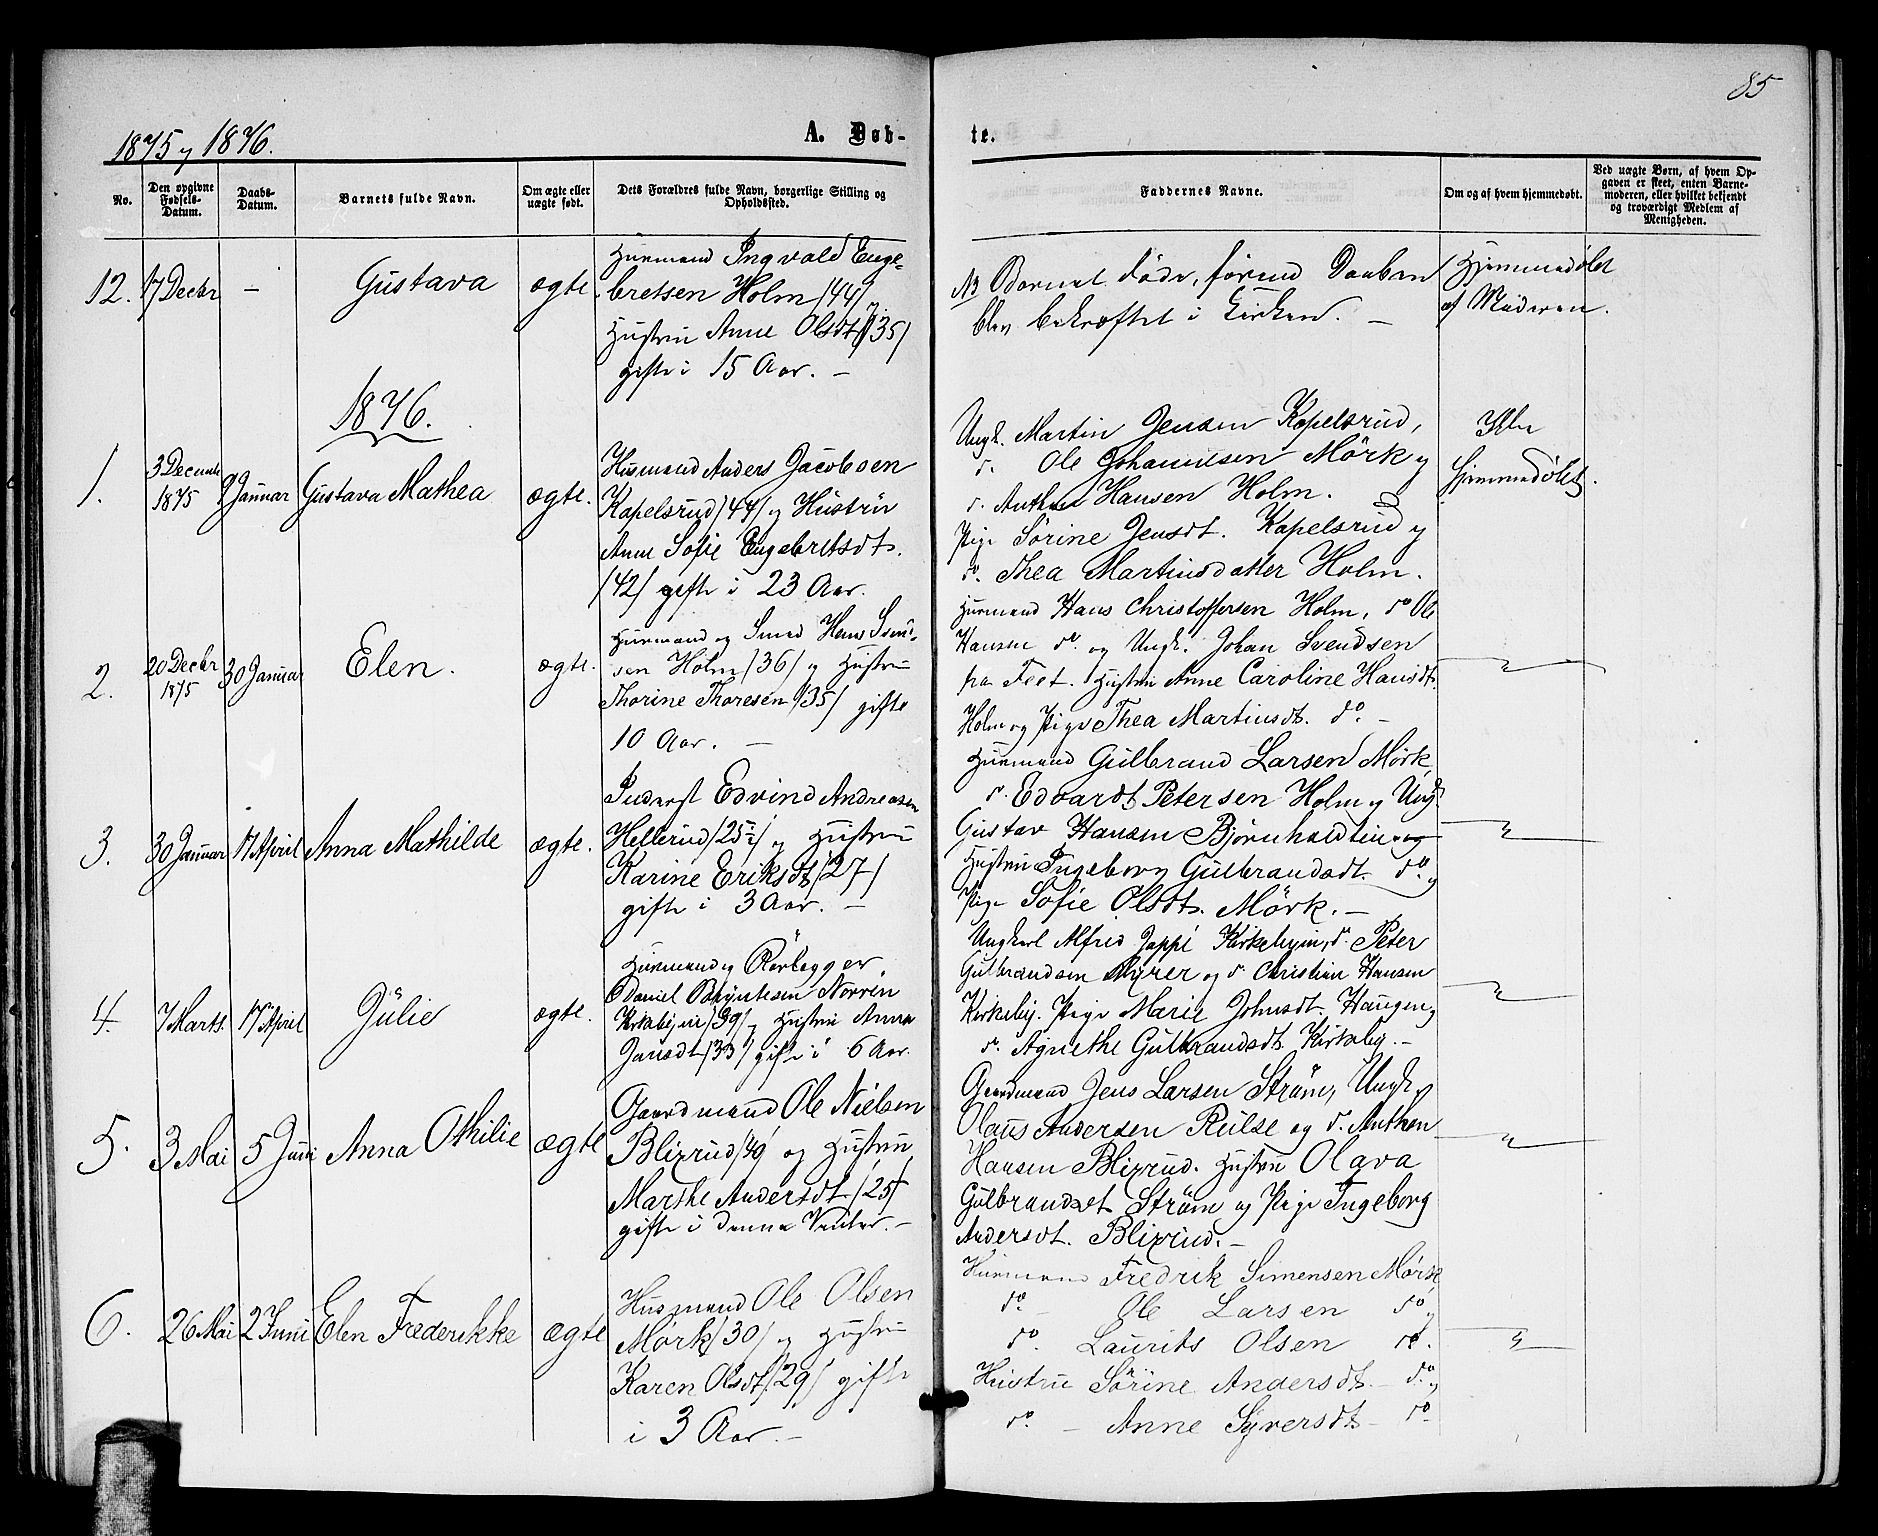 85
1875 y 1876.
A. Døb-
te.
No.
Den opgivne Fødsels-Datum.
Daabs-Datum.
Barnets fulde Navn.
Om ægte eller uægte født.
Dets Forældres fulde Navn, borgerlige Stilling og Opholdssted.
Faddernes Navne.
Om og af hvem hjemmedøbt.
Ved uægte Børn, af hvem Opgaven er skeet, enten Barnemoderen, eller hvilket bekjendt og troværdigt Medlem af Menigheden.
12. 17 Decbr - Gustava ægte.
Husmand Ingvald Enge-
bretsen Holm /44/ y
Hustru Anne Olsdt /35/
gifte i 15 Aar. -
NB Barnet døde, førend Daaben
blev bekræftet i Kirken. -
Hjemmedøbt
af Moderen.
1876.
1. 3 Decembr 1875 9 Januar Gustava Mathea ægte.
Husmand Anders Jacobsen
Kapelsrud /44/ y Hustru
Anne Sofie Engebretsdt.
/42/ gifte i 23 Aar.
Ungk. Martin Jensen Kapelsrud,
d. Ole Johannesen Mörk y
d. Anthon Hansen Holm.
Pige Sörine Jensdt. Kapelsrud y
do. Thea Martinsdatter Holm.
Ikke
hjemmedøbt.
2. 20 Decbr 1875 30 Januar Elen. ægte.
Husmand og Smed Hans Svend-
sen Holm /36/ y Hustru
Thorine Thoresen /35/ gifte
10 Aar. -
Husmand Hans Christoffersen Holm, do Ole
Hansen do. og Ungk. Johan Svendsen
paa Feet. Hustru Anne Caroline Hansdt.
Holm og Pige Thea Martinsdt. do. -
"
3. 30 Januar 17 April Anna Mathilde ægte.
Inderst Edvind Andreasen
Hellerud /25/ y Hustru
Karine Eriksdt /27/
gifte i 3 Aar. -
Husmand Gulbrand Larsen Mörk,
d. Edvardt Petersen Holm y Ungk.
Gustav Hansen Björnholdtin og
Hustru Ingeborg Gulbrandsdt. do. y
Pige Sofie Olsdt. Mörk. -
"
4. 7 Marts. 17 April Jülie ægte.
Husmand y Rörlegger
Daniel Norren
Kirkebyeie /39/ y Hustru Anna
Jansdt /33/ gifte i 6 Aar.
Ungkarl Alfred Jappé Kirkebyeie, d. Peter
Gulbrandsen Myrer og d. Christian Hansen
Kirkeby. Pige Marie Johnsdt. Haugen y
d. Agnethe Gulbrandsdt. Kirkeby. -
"
5. 3 Mai 5 Juni Anna Othilie ægte
Gaardmand Ole Nielsen
Blixrud /49/ og Hustru
Marthe Andersdt. /25/
gifte i denne Vinter. -
Gaardmand Jens Larsen Ström, Ungk.
Olaus Andersen Reilse og d. Anthon
Hansen Blixrud. Hustru Olava
Gulbrandsdt. Ström og Pige Ingeborg
Andersdt. Blixrud. -
"
6. 26 Mai 2 Juni Elen Frederikke ægte
Husmand Ole Olsen
Mörk /30/ y Hustru
Karen Olsdt. /29/ gifte
i 3 Aar. -
Husmand Fredrik Simensen Mörk,
do. - Ole Larsen do y
do. Laurits Olsen do.
Hustru Sörine Andersdt. - do. y
do. - Anne Syversdt - do.
"